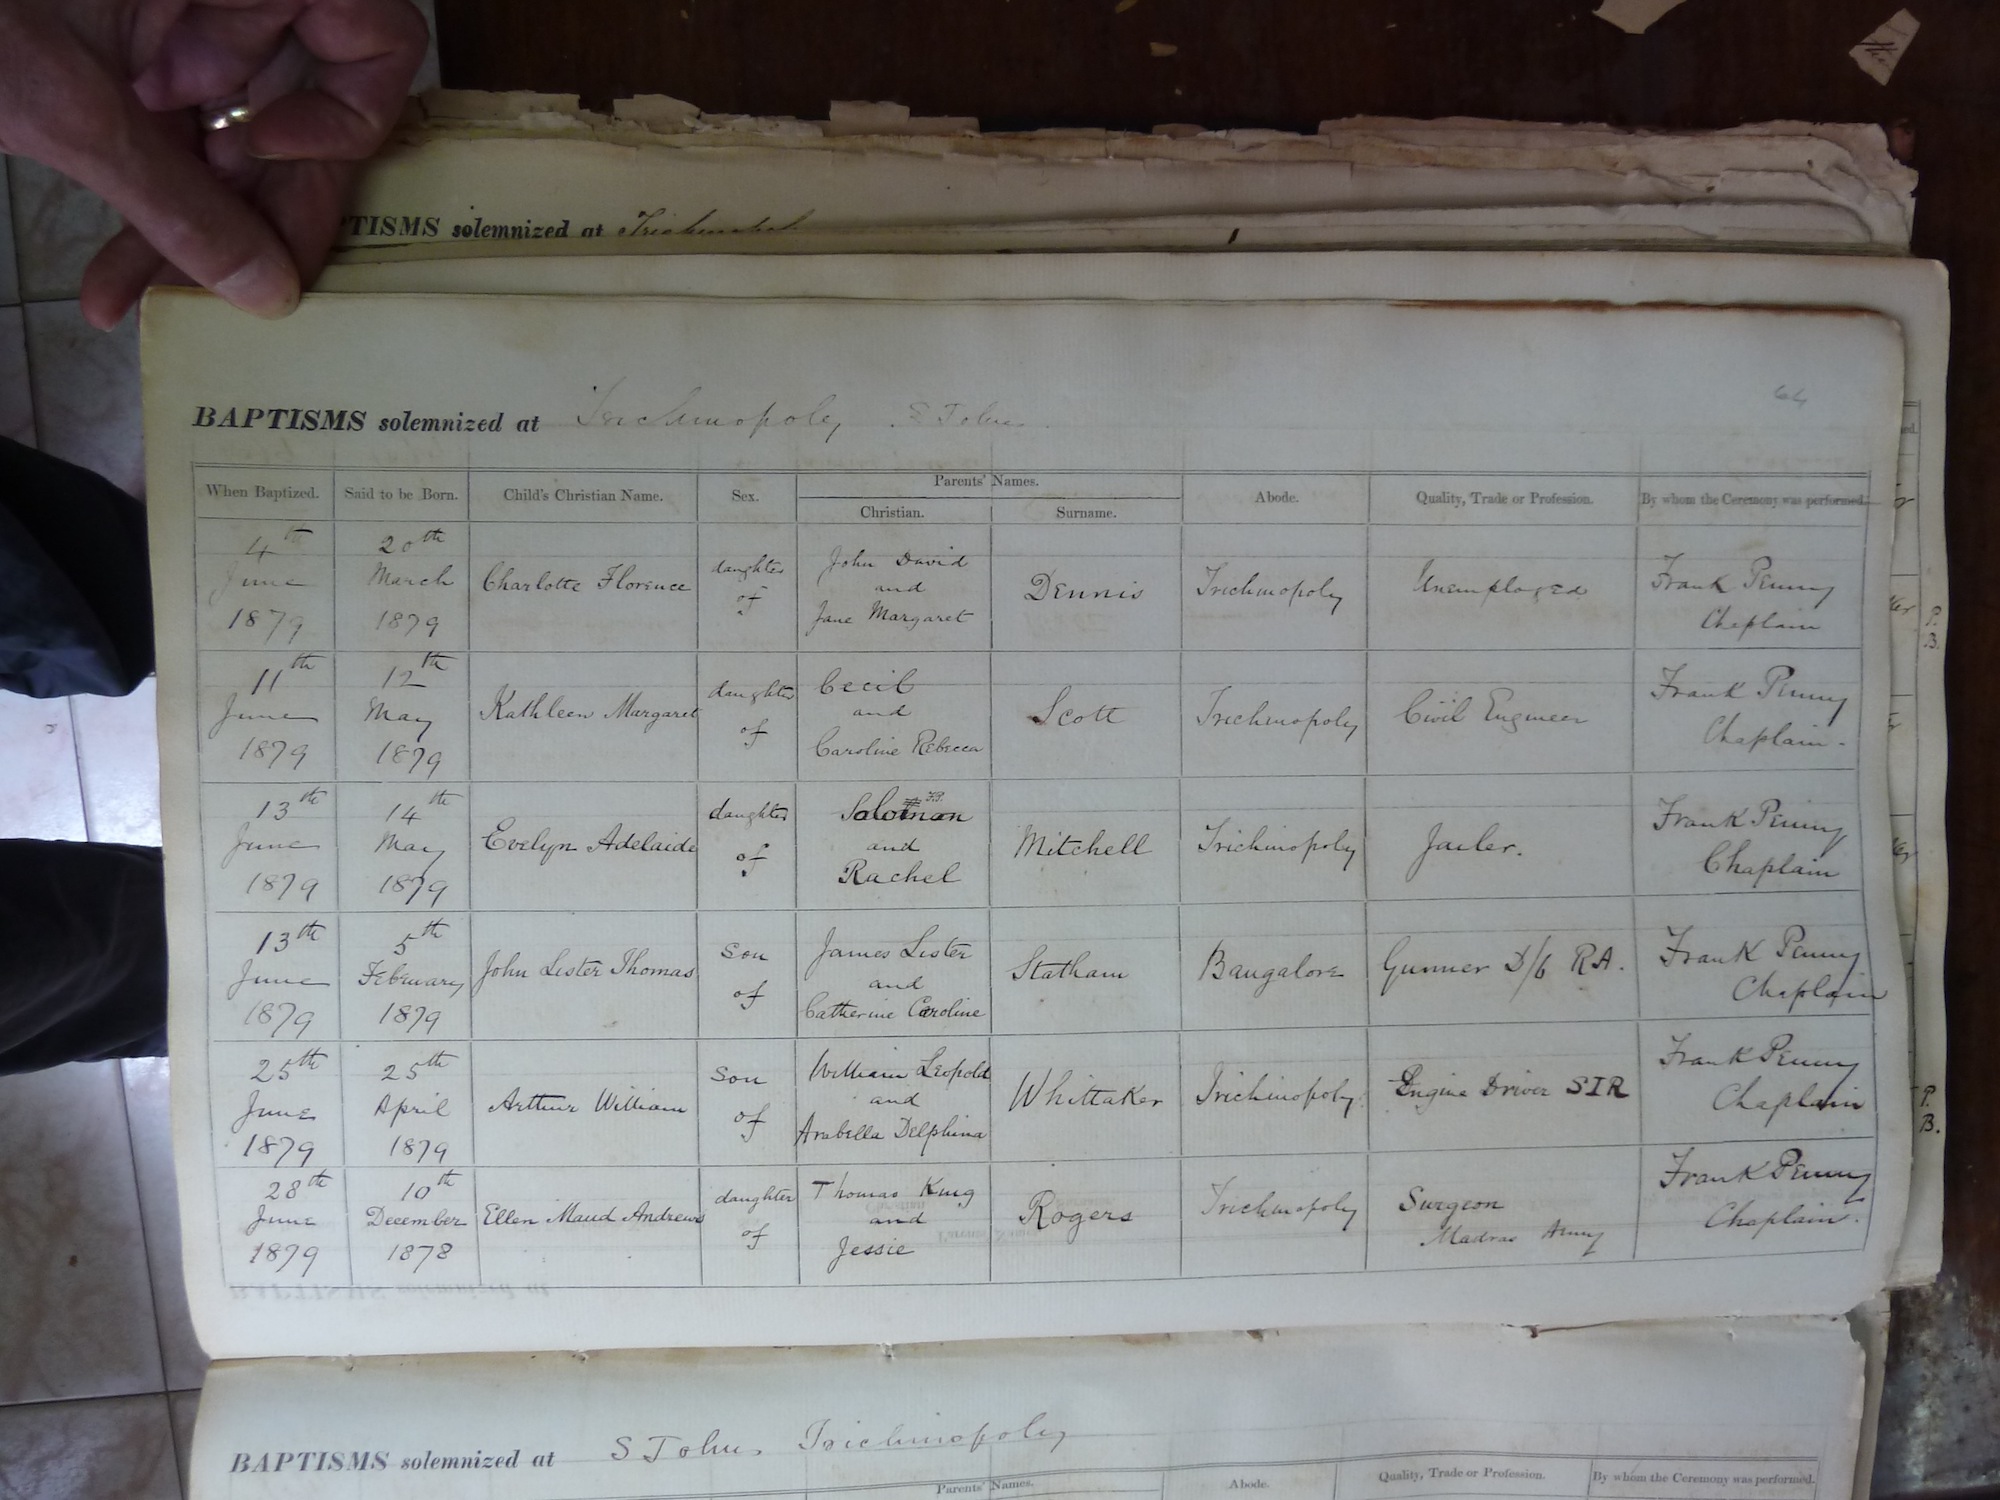 BAPTISMS solemnized at Trichinopoly
BAPTISMS solemnized at Trichinopoly, S Johns.
64
When Baptized. Said to be Born. Child's Christian Name. Sex. Parents' Names. Christian. Surname. Abode. Quality, Trade or Profession. By whom the Ceremony was performed.
4th June 1879 20th March 1879 Charlotte Florence daughter of John David and Jane Margaret Dennis Trichinopoly Unemployed Frank Penny Chaplain
11th June 1879 12th May 1879 Kathleen Margaret daughter of Cecil and Caroline Rebecca Scott Trichinopoly Civil Engineer Frank Penny Chaplain.
13th June 1879 14th May 1879 Evelyn Adelaide daughter of Solomon F.P. and Rachel Mitchell Trichinopoly Jailer. Frank Penny Chaplain
13th June 1879 5th February 1879 John Lister Thomas son of James Lister and Catherine Caroline Statham Bangalore Gunner D/6 RA. Frank Penny Chaplain
25th June 1879 25th April 1879 Arthur William son of William Leopold and Arabella Delphina Whittaker Trichinopoly. Engine Driver SIR Frank Penny Chaplain
28th June 1879 10th December 1878 Ellen Maud Andrews daughter of Thomas King and Jessie Rogers Trichinopoly Surgeon Madras Army Frank Penny Chaplain.
P.
B.
P.
B.
BAPTISMS solemnized at S Johns, Trichinopoly
Parents' Names. Abode. Quality, Trade or Profession. By whom the Ceremony was performed.